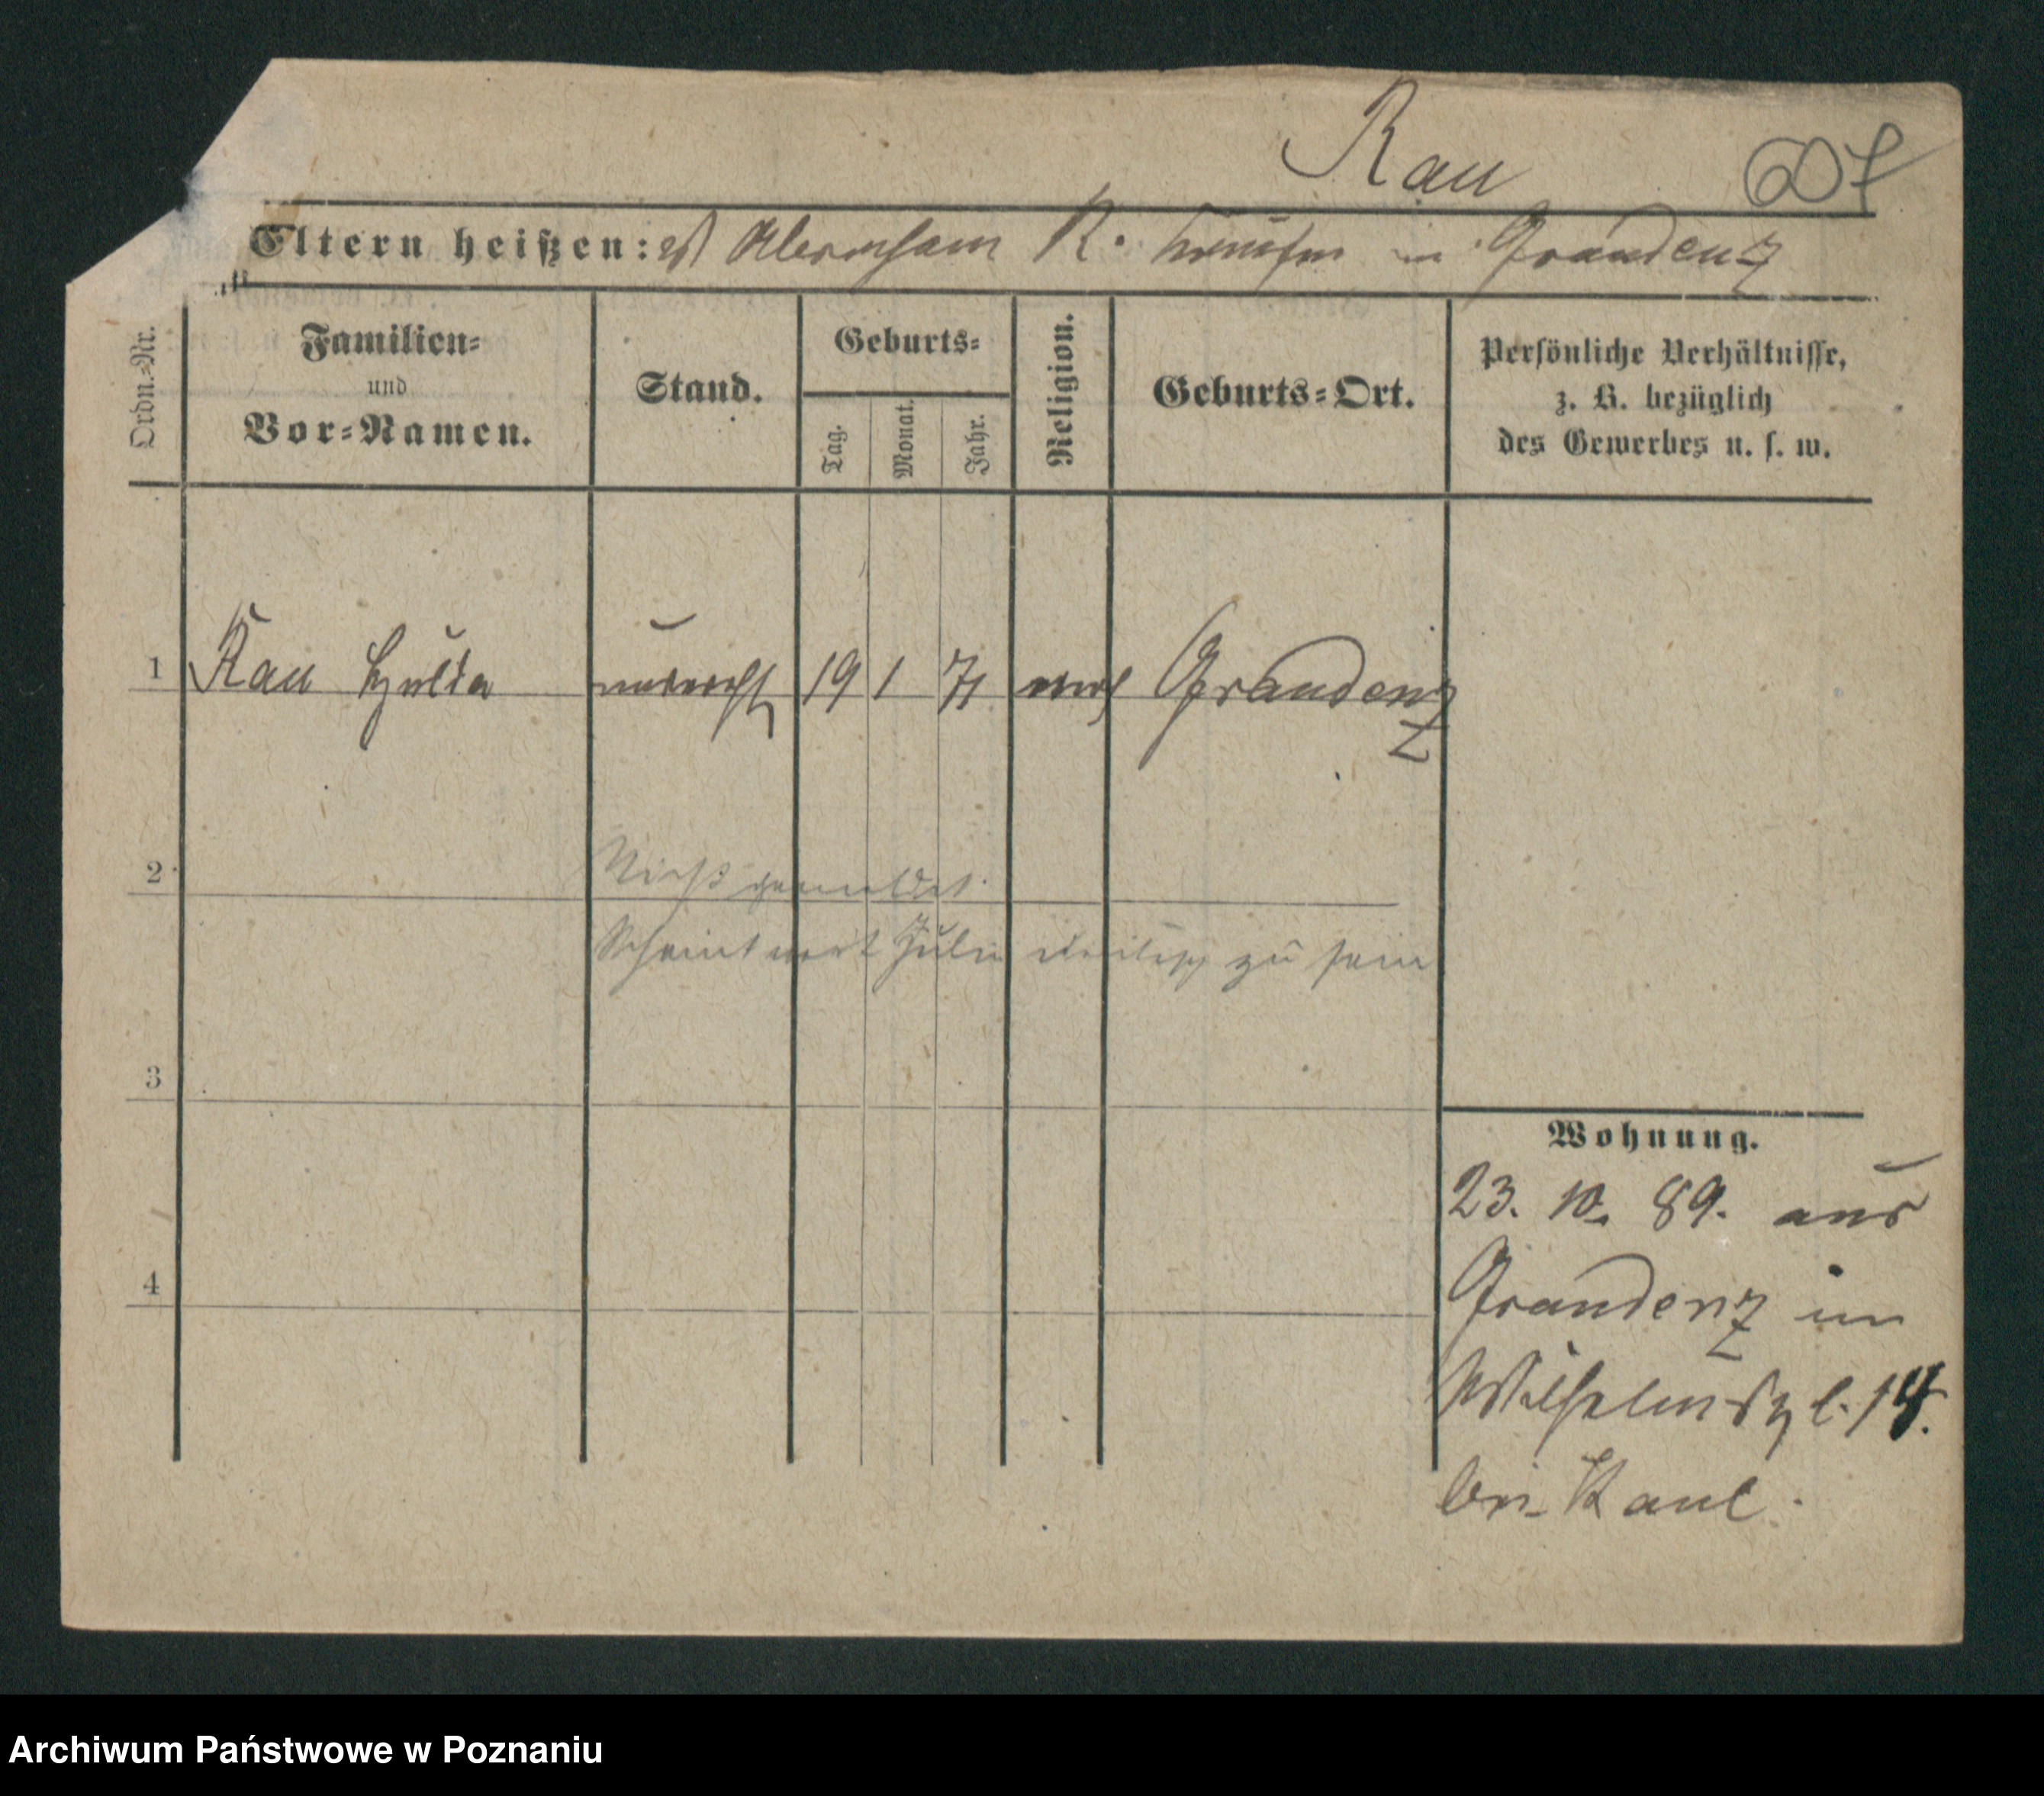 Rau 607
Eltern heißen: Abraham R. in Graudenz
Ordn.-Nr.
Familien-
und
Vor-Namen.
Stand.
Geburts-
Tag.
Monat.
Jahr.
Religion.
Geburts-Ort.
Persönliche Verhältnisse,
z. B. bezüglich
des Gewerbes u. s. w.
1 Rau Hulda unverehl 19 1 71 mos Graudenz
2 Nicht gemeldet.
Scheint mit Julie identisch zu sein
3
4
Wohnung.
23. 10. 89. aus
Graudenz in
Wilhelmspl. 14.
bei Kaul.
Archiwum Państwowe w Poznaniu